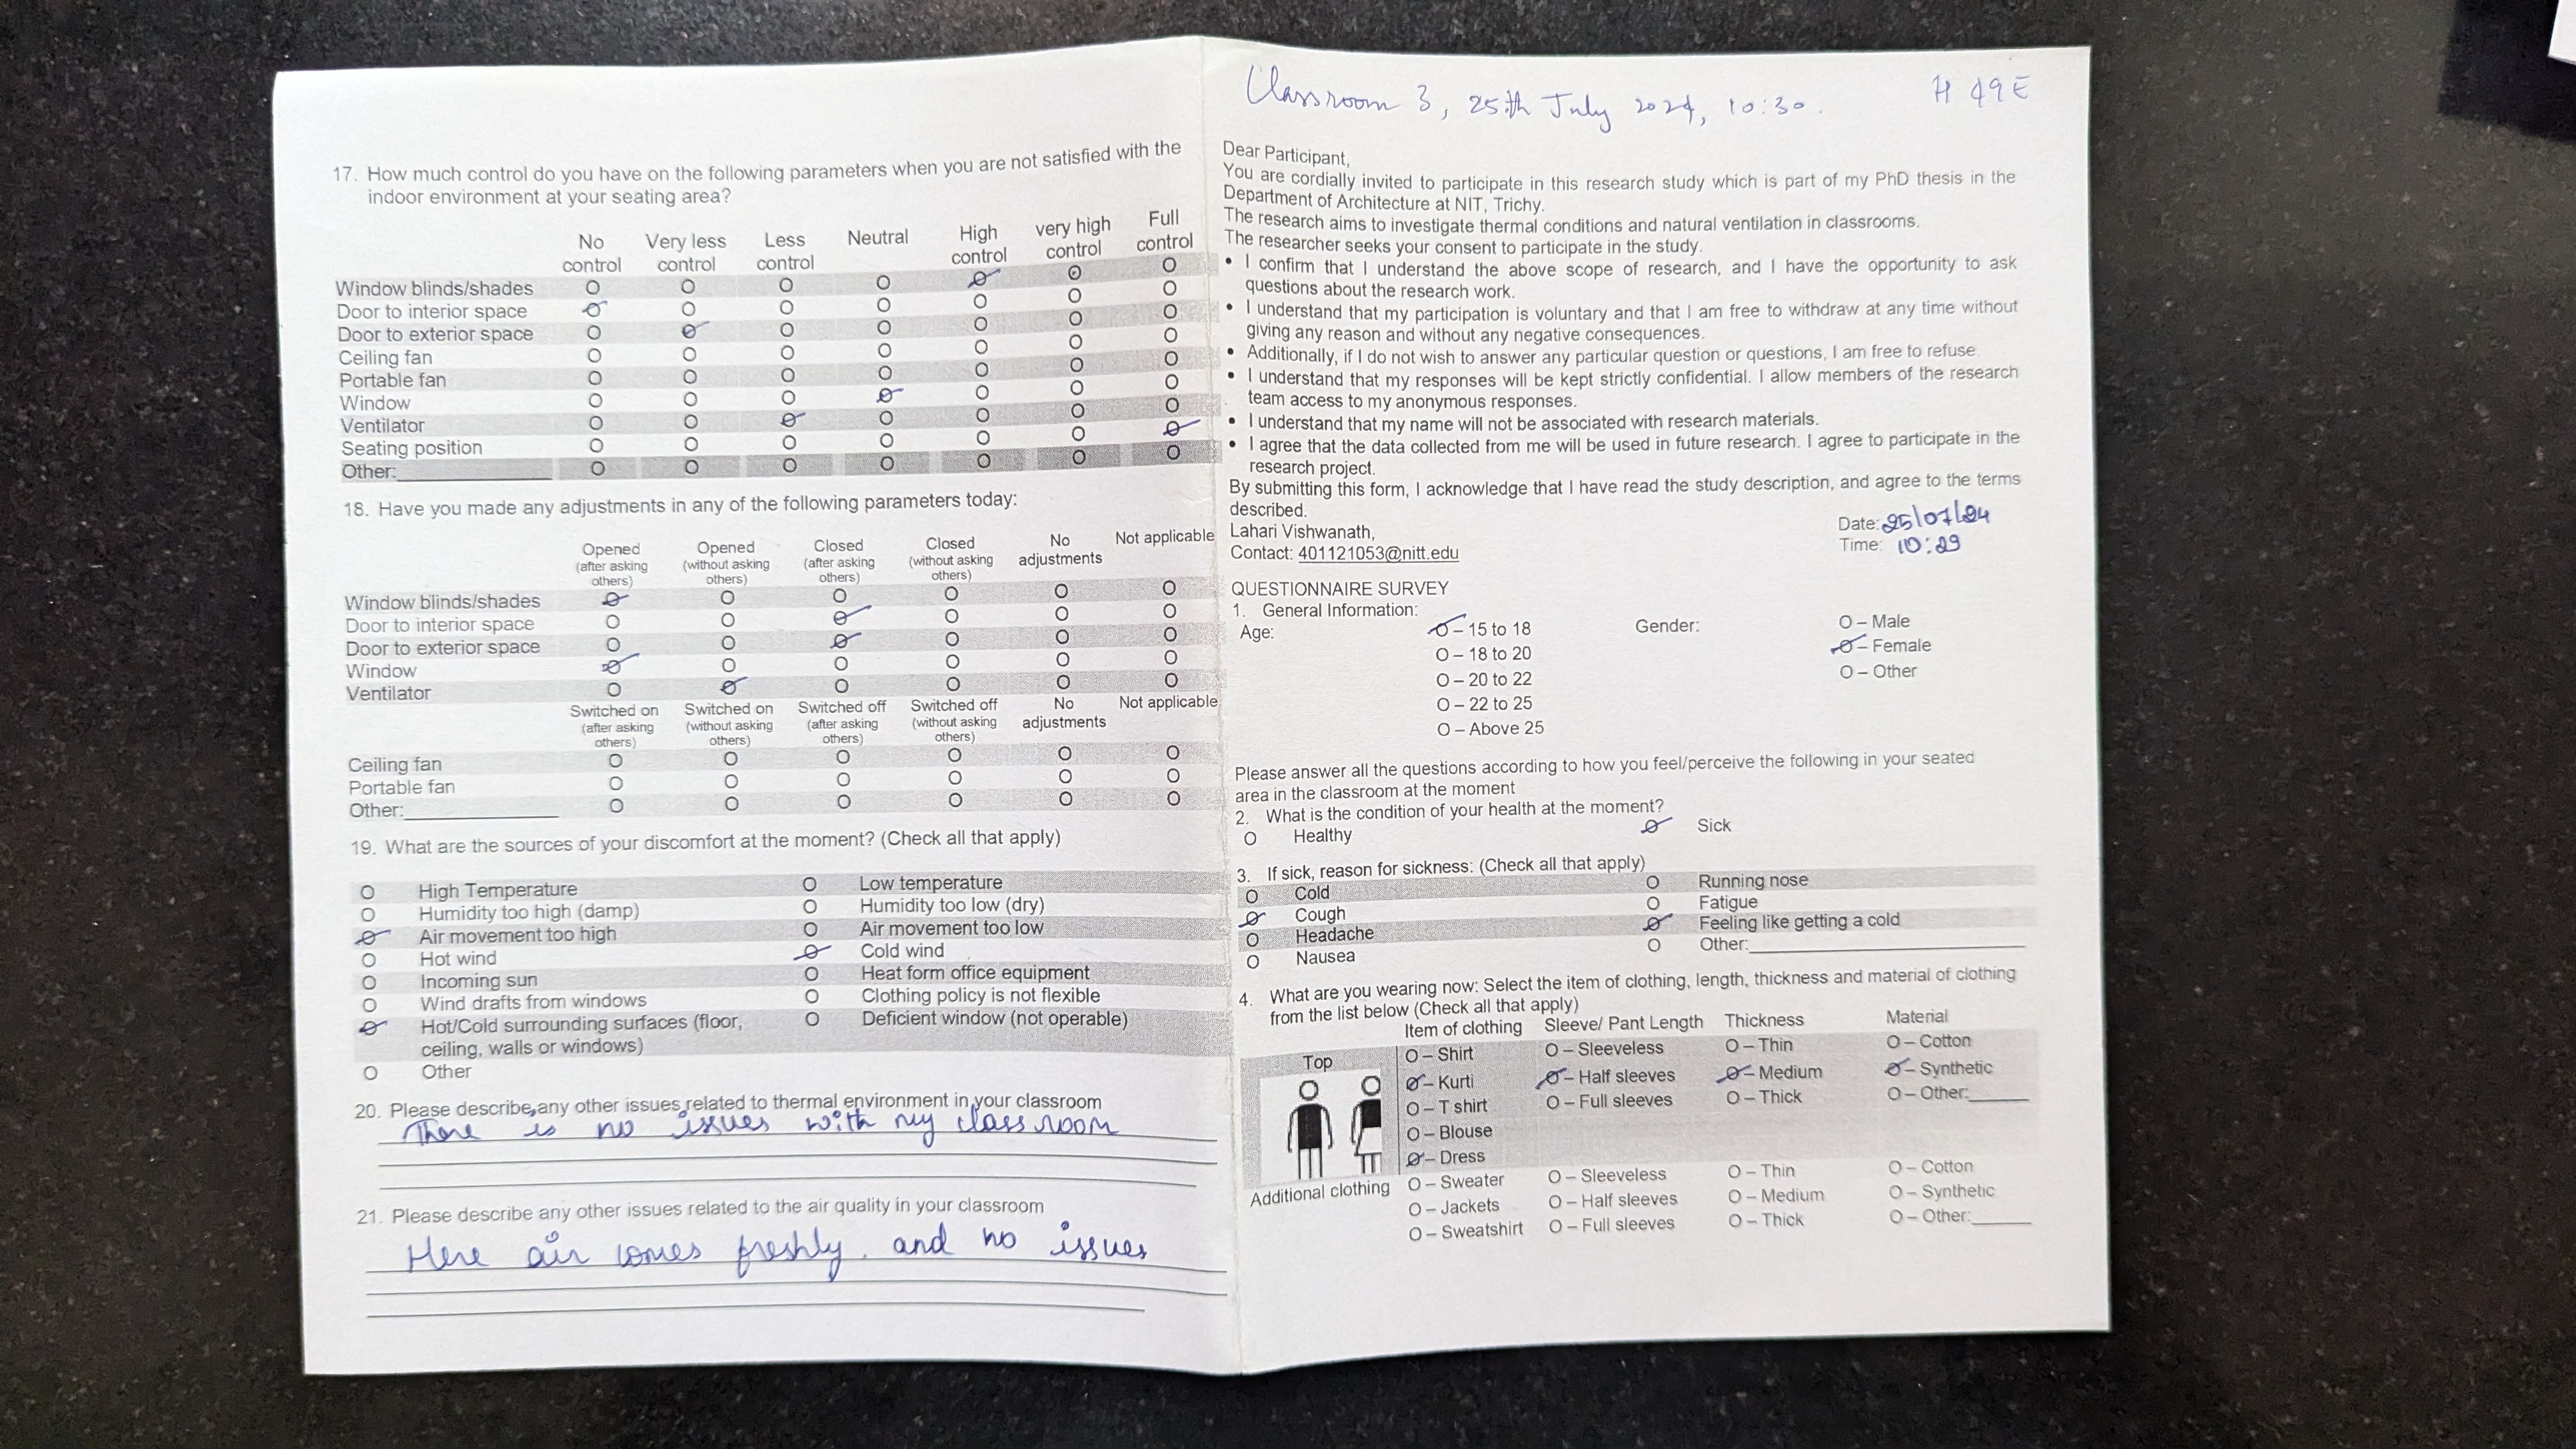 17. How much control do you have on the following parameters when you are not satisfied with the
indoor environment at your seating area?
No control Very less control Less control Neutral High control very high control Full control
Window blinds/shades O O O O O O O
Door to interior space O O O O O O O
Door to exterior space O O O O O O O
Ceiling fan O O O O O O O
Portable fan O O O O O O O
Window O O O O O O O
Ventilator O O O O O O O
Seating position O O O O O O O
Other:____________ O O O O O O O
18. Have you made any adjustments in any of the following parameters today:
Opened (after asking others) Opened (without asking others) Closed (after asking others) Closed (without asking others) No adjustments Not applicable
Window blinds/shades O O O O O O
Door to interior space O O O O O O
Door to exterior space O O O O O O
Window O O O O O O
Ventilator O O O O O O
Switched on (after asking others) Switched on (without asking others) Switched off (after asking others) Switched off (without asking others) No adjustments Not applicable
Ceiling fan O O O O O O
Portable fan O O O O O O
Other:____________ O O O O O O
19. What are the sources of your discomfort at the moment? (Check all that apply)
O High Temperature O Low temperature
O Humidity too high (damp) O Humidity too low (dry)
O Air movement too high O Air movement too low
O Hot wind O Cold wind
O Incoming sun O Heat form office equipment
O Wind drafts from windows O Clothing policy is not flexible
O Hot/Cold surrounding surfaces (floor, O Deficient window (not operable)
ceiling, walls or windows)
O Other
20. Please describe any other issues related to thermal environment in your classroom
There is no issues with my classroom
21. Please describe any other issues related to the air quality in your classroom
Here air comes freshly. and no issues
Classroom 3, 25th July 2024, 10:30. H 49E
Dear Participant,
You are cordially invited to participate in this research study which is part of my PhD thesis in the
Department of Architecture at NIT, Trichy.
The research aims to investigate thermal conditions and natural ventilation in classrooms.
The researcher seeks your consent to participate in the study.
• I confirm that I understand the above scope of research, and I have the opportunity to ask
questions about the research work.
• I understand that my participation is voluntary and that I am free to withdraw at any time without
giving any reason and without any negative consequences.
• Additionally, if I do not wish to answer any particular question or questions, I am free to refuse.
• I understand that my responses will be kept strictly confidential. I allow members of the research
team access to my anonymous responses.
• I understand that my name will not be associated with research materials.
• I agree that the data collected from me will be used in future research. I agree to participate in the
research project.
By submitting this form, I acknowledge that I have read the study description, and agree to the terms
described.
Lahari Vishwanath, Date: 25/07/24
Contact: 401121053@nitt.edu Time: 10:29
QUESTIONNAIRE SURVEY
1. General Information:
Age: O – 15 to 18 Gender: O – Male
O – 18 to 20 O – Female
O – 20 to 22 O – Other
O – 22 to 25
O – Above 25
Please answer all the questions according to how you feel/perceive the following in your seated
area in the classroom at the moment
2. What is the condition of your health at the moment?
O Healthy O Sick
3. If sick, reason for sickness: (Check all that apply)
O Cold O Running nose
O Cough O Fatigue
O Headache O Feeling like getting a cold
O Nausea O Other:____________
4. What are you wearing now: Select the item of clothing, length, thickness and material of clothing
from the list below (Check all that apply)
Item of clothing Sleeve/ Pant Length Thickness Material
Top O – Shirt O – Sleeveless O – Thin O – Cotton
O – Kurti O – Half sleeves O – Medium O – Synthetic
O – T shirt O – Full sleeves O – Thick O – Other:______
O – Blouse
O – Dress
Additional clothing O – Sweater O – Sleeveless O – Thin O – Cotton
O – Jackets O – Half sleeves O – Medium O – Synthetic
O – Sweatshirt O – Full sleeves O – Thick O – Other:______